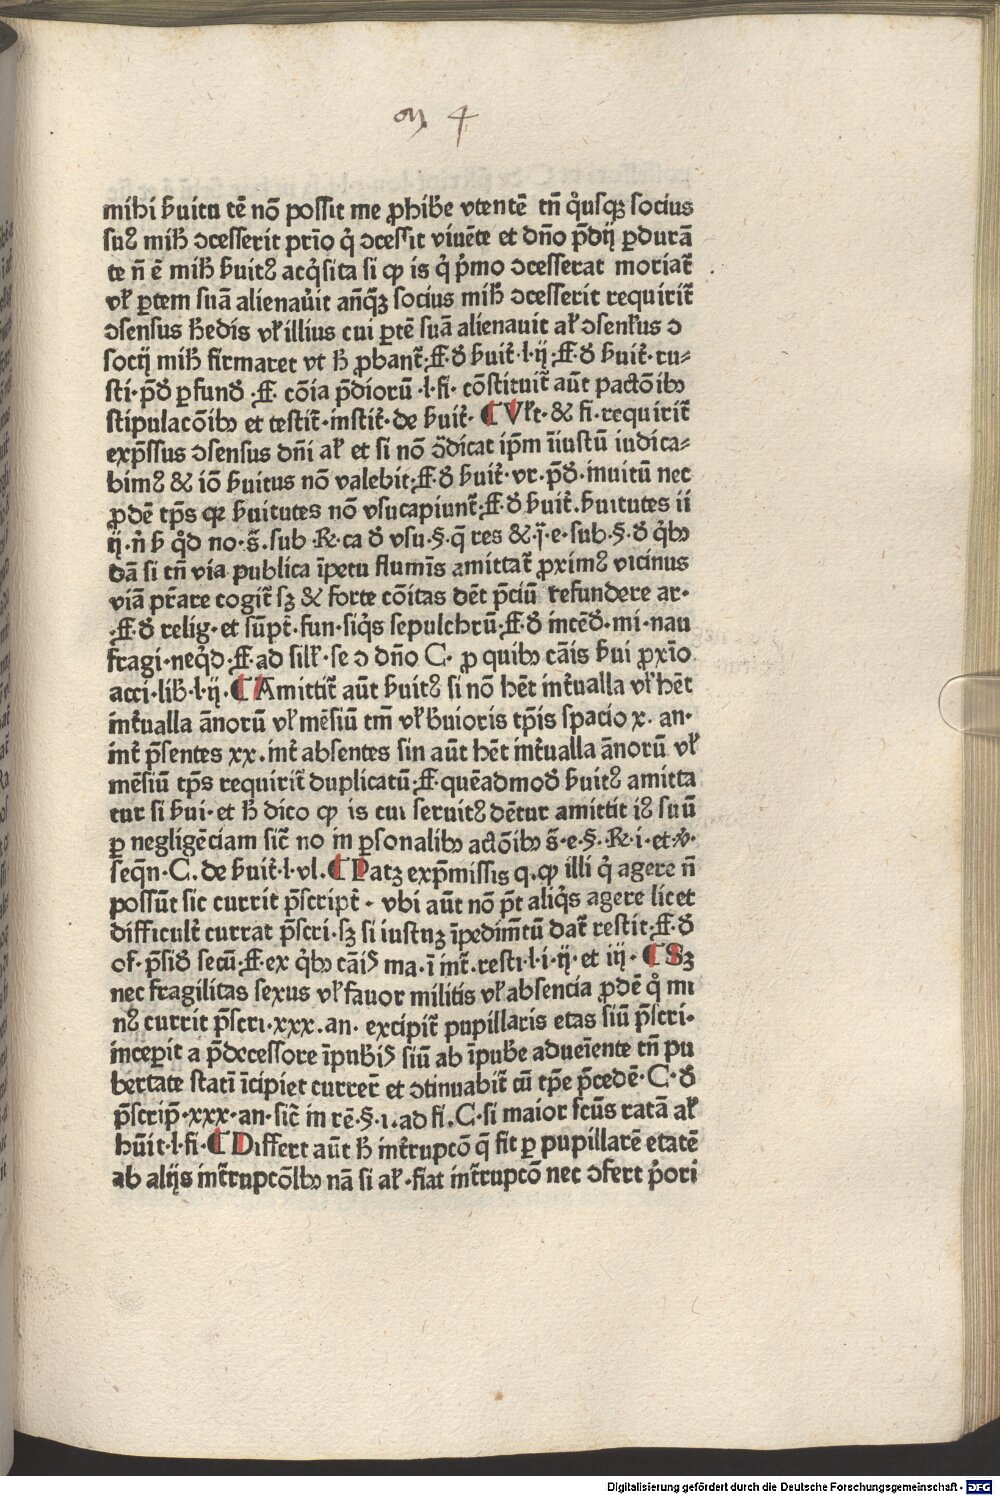 m 4
mihi ẜuitu tē nō possit me ꝓhibe᷑ vtentē tn̄ qͥusqꝫ socius
suꝰ mihꝭ ꝯcesserit prīo qͥ ꝯcessit viuēte et dn̄o p̄dij ꝑdurā
te n̄ ē mihꝭ ẜuitꝰ acqͥsita si ꝙ is qͥ pͥmo ꝯcesserat moriat᷑
vꝉ ꝑtem suā alienau᷑it an̄qꝫ socius mihꝭ ꝯcesserit requirit᷑
ꝯsensus he᷑dis vꝉ illius cui ꝑtē suā alienauit aꝉ ꝯsenꝰus ꝯ
socij mihꝭ firmaret vt hꝭ ꝓbant᷑·ff·đ ẜuit᷑·l·ij·ff·đ ẜuit᷑·ru⸗
sti·p̄đ ꝑfunđ·ff·cōia p̄diorū·l·fi·cōstituit᷑ aūt pactōibꝫ
stipulacōibꝫ et testit᷑·instit᷑·de ẜuit᷑·¶Vꝉt·& fi·requirit᷑
exp̄ssus ꝯsensus dn̄i aꝉ et si nō ꝯ̄dicat ip̄m īiustū iudica⸗
bimꝰ & iō ẜuitus nō valebit·ff·đ ẜuit᷑·vt·p̄đ·inuitū nec
ꝓdē tp̄s qꝛ ẜuitutes nō vsucapiunt᷑·ff·đ ẜuit᷑·ẜuitutes ii
ij·n̄ ẜ qͥd no·s̄·sub·R·ca đ vsu·§·q̄ res &·j̄·e·sub·§·đ qͥbꝫ
dā si tn̄ via publica īpetu flumīs amittat᷑ ꝓximꝰ vicinus
viā pr̄are cogit᷑ sꝫ & forte cōitas dēt p̄ciū refundere ar·
·ff·đ relig·et sūpt᷑·fun·siqͥs sepulchrū·ff·đ incēđ·mi·nau
fragi·neqͥd·ff·ad sill᷑·se ꝯ dn̄o C·ꝓ quibꝫ cāis ẜui ꝓxīo
acci·lib᷑·l·ij·¶Amittit᷑ aūt ẜuitꝰ si nō hēt int᷑ualla vꝉ hēt
int᷑ualla ānorū vꝉ mēsiū tm̄ vꝉ ẜuioris tp̄is spacio x·an·
int᷑ p̄sentes xx·int᷑ absentes sin aūt hēt int᷑ualla ānorū vꝉ
mēsiū tp̄s requirit᷑ duplicatū·ff·quēadmođ ẜuitꝰ amitta
tur si ẜui·et hꝭ dico ꝙ is cui seruitꝰ dētur amittit iꝰ suū
ꝑ negligēciam sic᷑ no in ꝑsonalibꝫ actōibꝫ s̄·e·§·R·i·et·℣·
seqn̄·C·de ẜuit᷑·l·vl·¶Patꝫ exp̄missis q·ꝙ illi qͥ agere n̄
possūt sic currit p̄script᷑·vbi aūt nō p̄t aliqͥs agere licet
difficult᷑ currat p̄scri·sꝫ si iustuꝫ īpedim̄tū dat᷑ restit·ff·đ
of·p̄siđ secū·ff·ex qͥbꝫ cāiꝭ ma·ī int᷑·resti·l·i·ij·et iij·¶Sꝫ
nec fragilitas sexus vꝉ fauor militis vꝉ absencia ꝓdē qͦ mi
nꝰ currit p̄scri·xxx·an·excipit᷑ pupillaris etas siū p̄scri·
inceꝑit a p̄decessore īpub᷑iꝭ siū ab īpube᷑ adueīente tn̄ pu
bertate statī īcipiet currer᷑ et ꝯtinuabit᷑ cū tp̄e p̄cedē·C·đ
p̄scrip̄·xxx·an·sic᷑ in rē·§·i·ad fi·C·si maior fcūs ratā aꝉ
hūit·l·fi·¶Differt aūt hꝭ int᷑rupcō q̄ fit ꝑ pupillarē etatē
ab alijs int᷑rupcōibꝫ nā si aꝉ·fiat int᷑rupcō nec ꝯfert pͥori
Digitalisierung gefördert durch die Deutsche Forschungsgemeinschaft - DFG